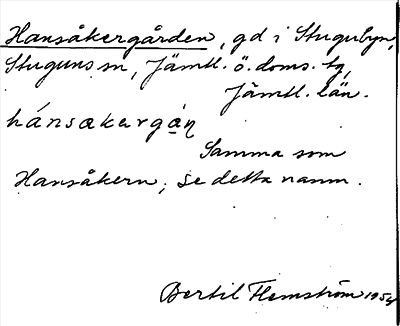 Hansåkergården, gd i Stugubyn,
Stuguns sn, Jämtl. ö. doms. tg,
Jämtl. län.
hánsakargạ́ṇ
Samma som
Hansåkern; se detta namn.
Bertil Flemström 1954